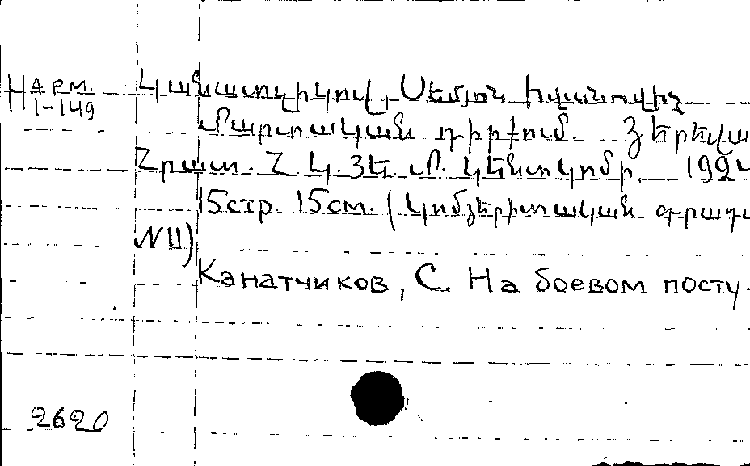 Нарм.
1-149
Կանատչիկով, Սեմյոն Իվանովիչ
Մարտական դիրքում. Երևա
Հրատ. Հ Կ ՅԵ Մ. կենտկոմի. 192
15стр. 15см. (Կոմյերիտական գրադ
№ 11)
Канатчиков, С. На боевом посту.
2620